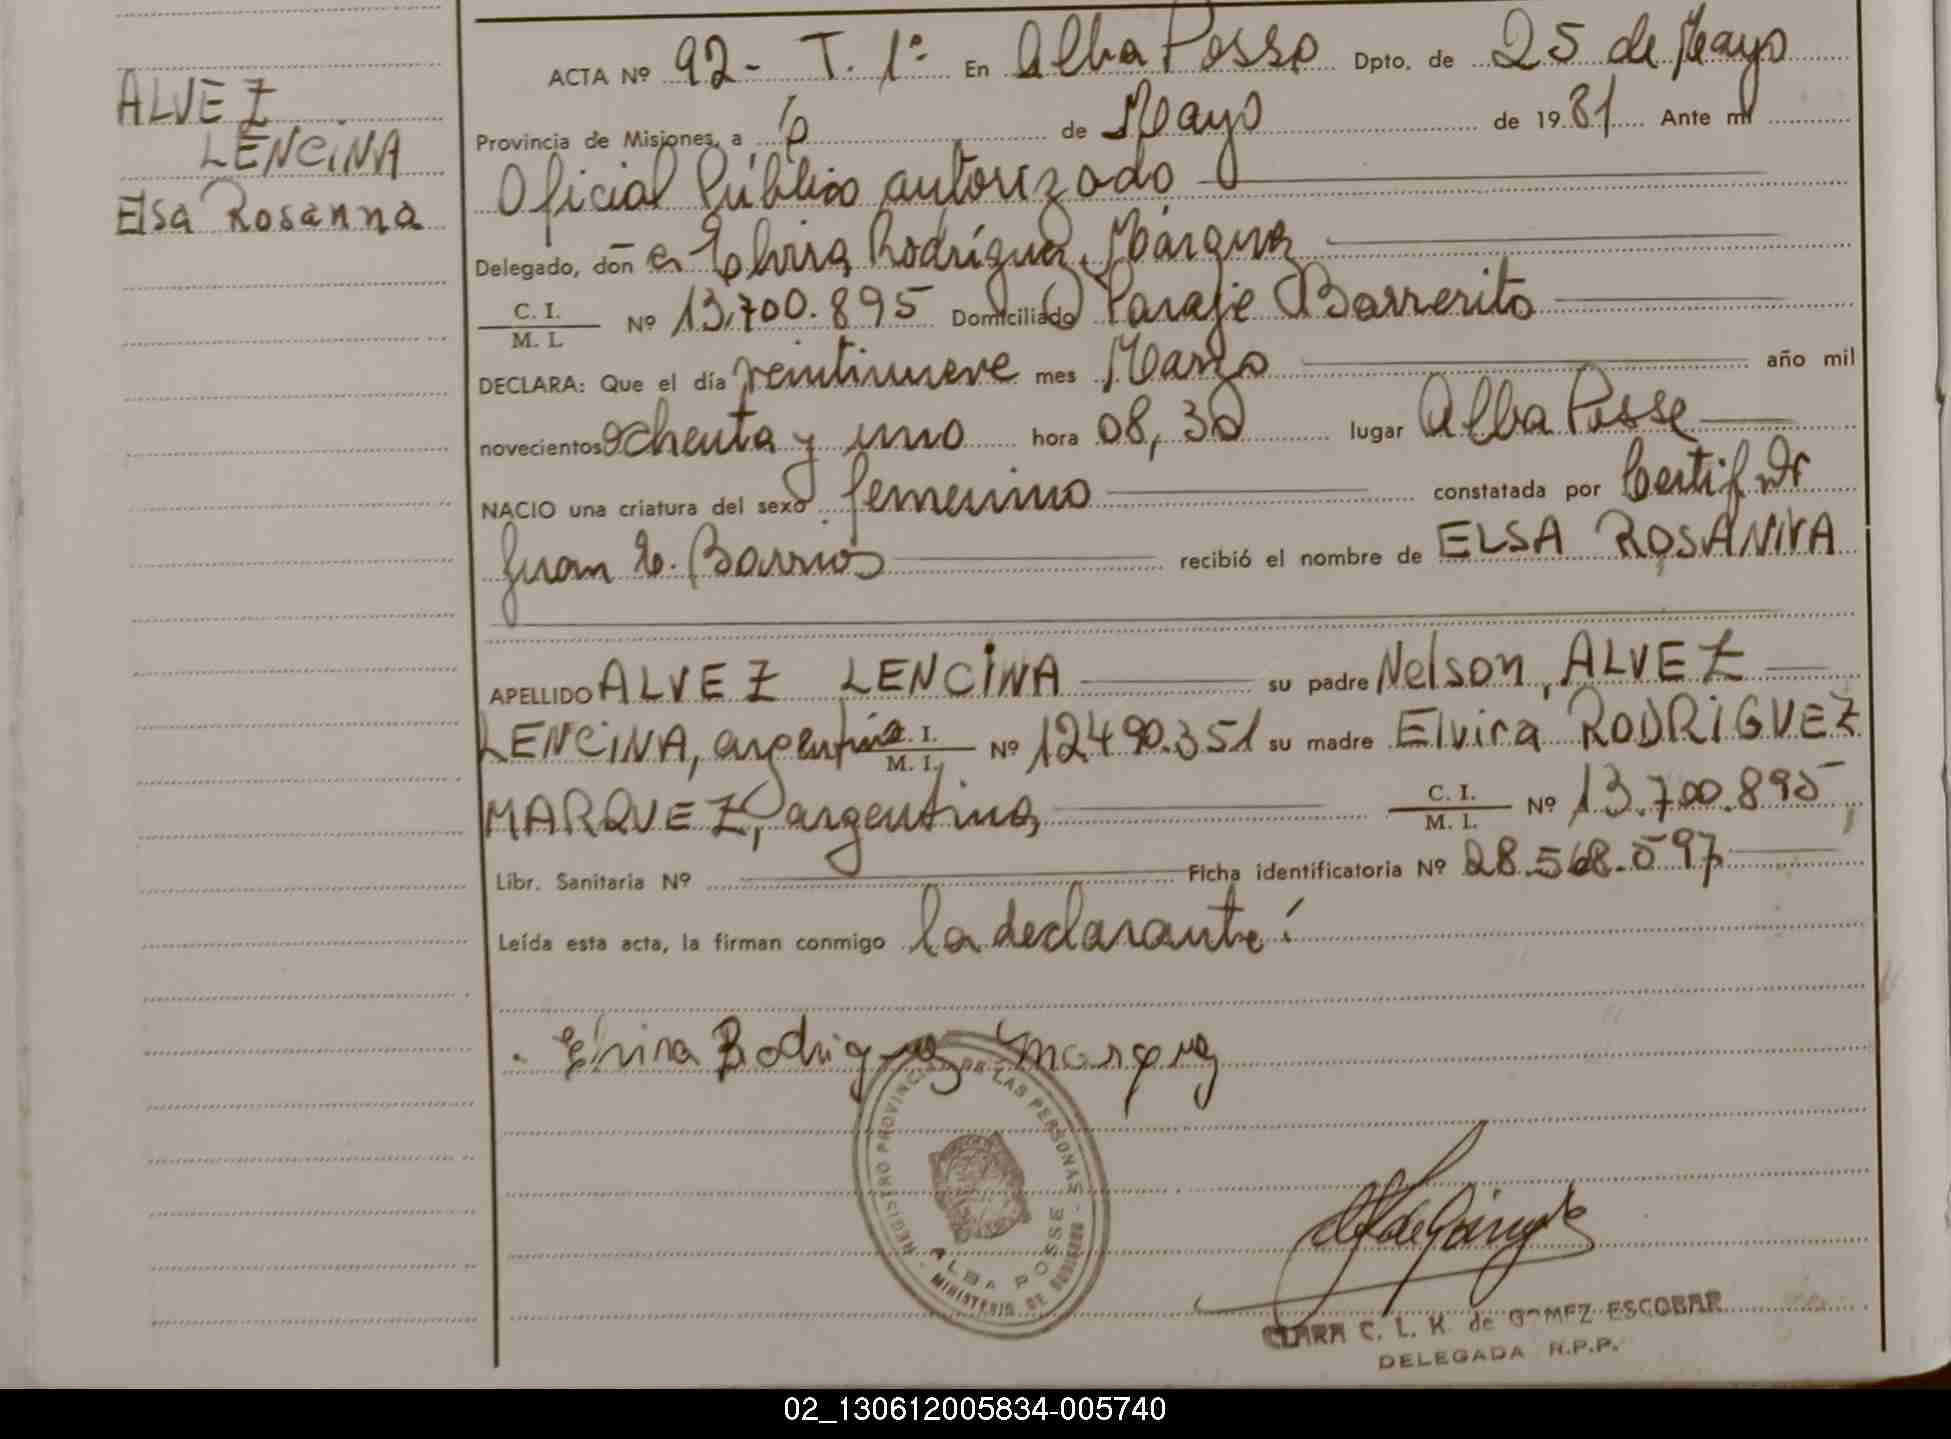 ALVEZ
LENCINA
Elsa Rosanna
ACTA Nº 92- T. 1º En Alba Posse Dpto. de 25 de Mayo
Provincia de Misiones, a 6 de Mayo de 1981 Ante mí
Oficial Público autorizado
Delegado, don a Elvira Rodríguez Márquez
C. I.
M. I. Nº 13.700.895 Domiciliado Paraje Barrerito
DECLARA: Que el día veintinueve mes Marzo año mil
novecientos ochenta y uno hora 08,30 lugar Alba Posse
NACIO una criatura del sexo femenino constatada por Certif. Dr
Juan E. Barrios recibió el nombre de ELSA ROSANNA
APELLIDO ALVEZ LENCINA su padre Nelson ALVEZ
LENCINA, argentino C. I. M. I. Nº 12490.351 su madre Elvira RODRIGUEZ
MARQUEZ, argentina C. I. M. I. Nº 13.700.895,
Libr. Sanitaria Nº Ficha identificatoria Nº 28.568.597
Leída esta acta, la firman conmigo la declarante:
Elvira Rodriguez Marquez
REGISTRO PROVINCIAL DE LAS PERSONAS - MINISTERIO DE GOBIERNO -
ALBA POSSE
CLARA C. L. K. de GOMEZ ESCOBAR
DELEGADA R.P.P.
02_130612005834-005740